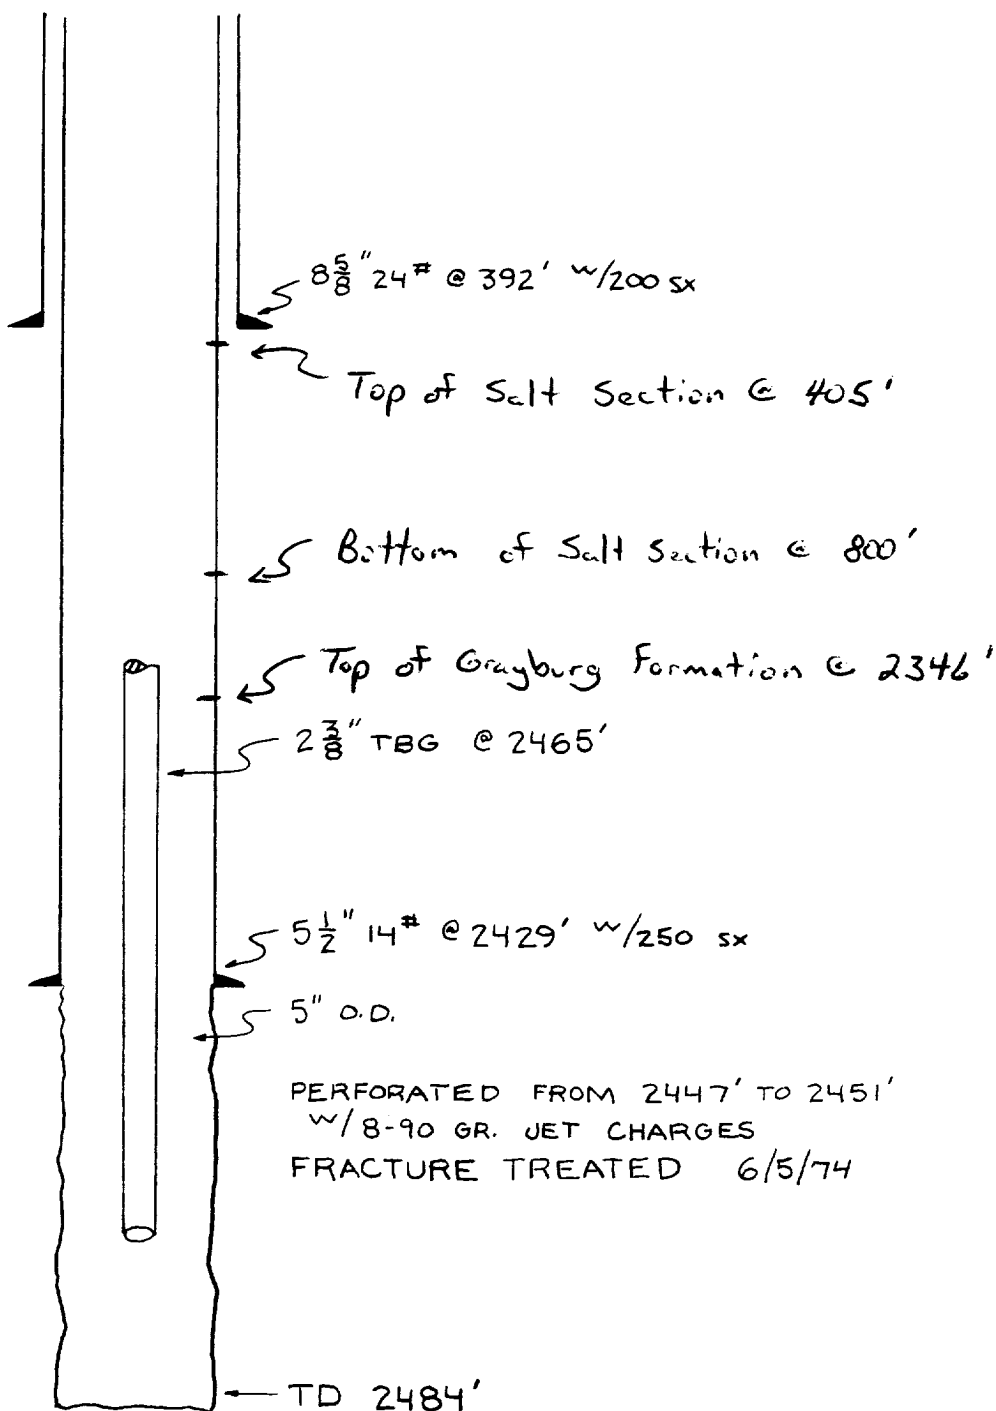 8 5/8" 24# @ 392' w/200 sx
Top of Salt Section @ 405'
Bottom of Salt Section @ 800'
Top of Grayburg Formation @ 2346'
2 3/8" TBG @ 2465'
5 1/2" 14# @ 2429' w/250 sx
5" O.D.
PERFORATED FROM 2447' TO 2451'
w/8-90 GR. JET CHARGES
FRACTURE TREATED 6/5/74
TD 2484'